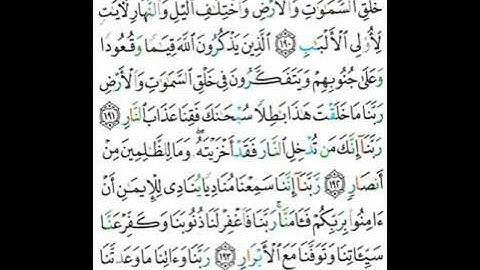 خَلْقِ ٱلسَّمَٰوَٰتِ وَٱلْأَرْضِ وَٱخْتِلَٰفِ ٱلَّيْلِ وَٱلنَّهَارِ لَءَايَٰتٍ
لِّأُو۟لِى ٱلْأَلْبَٰبِ ١٩٠ ٱلَّذِينَ يَذْكُرُونَ ٱللَّهَ قِيَٰمًا وَقُعُودًا
وَعَلَىٰ جُنُوبِهِمْ وَيَتَفَكَّرُونَ فِى خَلْقِ ٱلسَّمَٰوَٰتِ وَٱلْأَرْضِ
رَبَّنَا مَا خَلَقْتَ هَٰذَا بَٰطِلًا سُبْحَٰنَكَ فَقِنَا عَذَابَ ٱلنَّارِ ١٩١
رَبَّنَآ إِنَّكَ مَن تُدْخِلِ ٱلنَّارَ فَقَدْ أَخْزَيْتَهُۥ ۖ وَمَا لِلظَّٰلِمِينَ مِنْ
أَنصَارٍ ١٩٢ رَّبَّنَآ إِنَّنَا سَمِعْنَا مُنَادِيًا يُنَادِى لِلْإِيمَٰنِ أَنْ
ءَامِنُوا۟ بِرَبِّكُمْ فَـَٔامَنَّا ۚ رَبَّنَا فَٱغْفِرْ لَنَا ذُنُوبَنَا وَكَفِّرْ عَنَّا
سَيِّـَٔاتِنَا وَتَوَفَّنَا مَعَ ٱلْأَبْرَارِ ١٩٣ رَبَّنَا وَءَاتِنَا مَا وَعَدتَّنَا